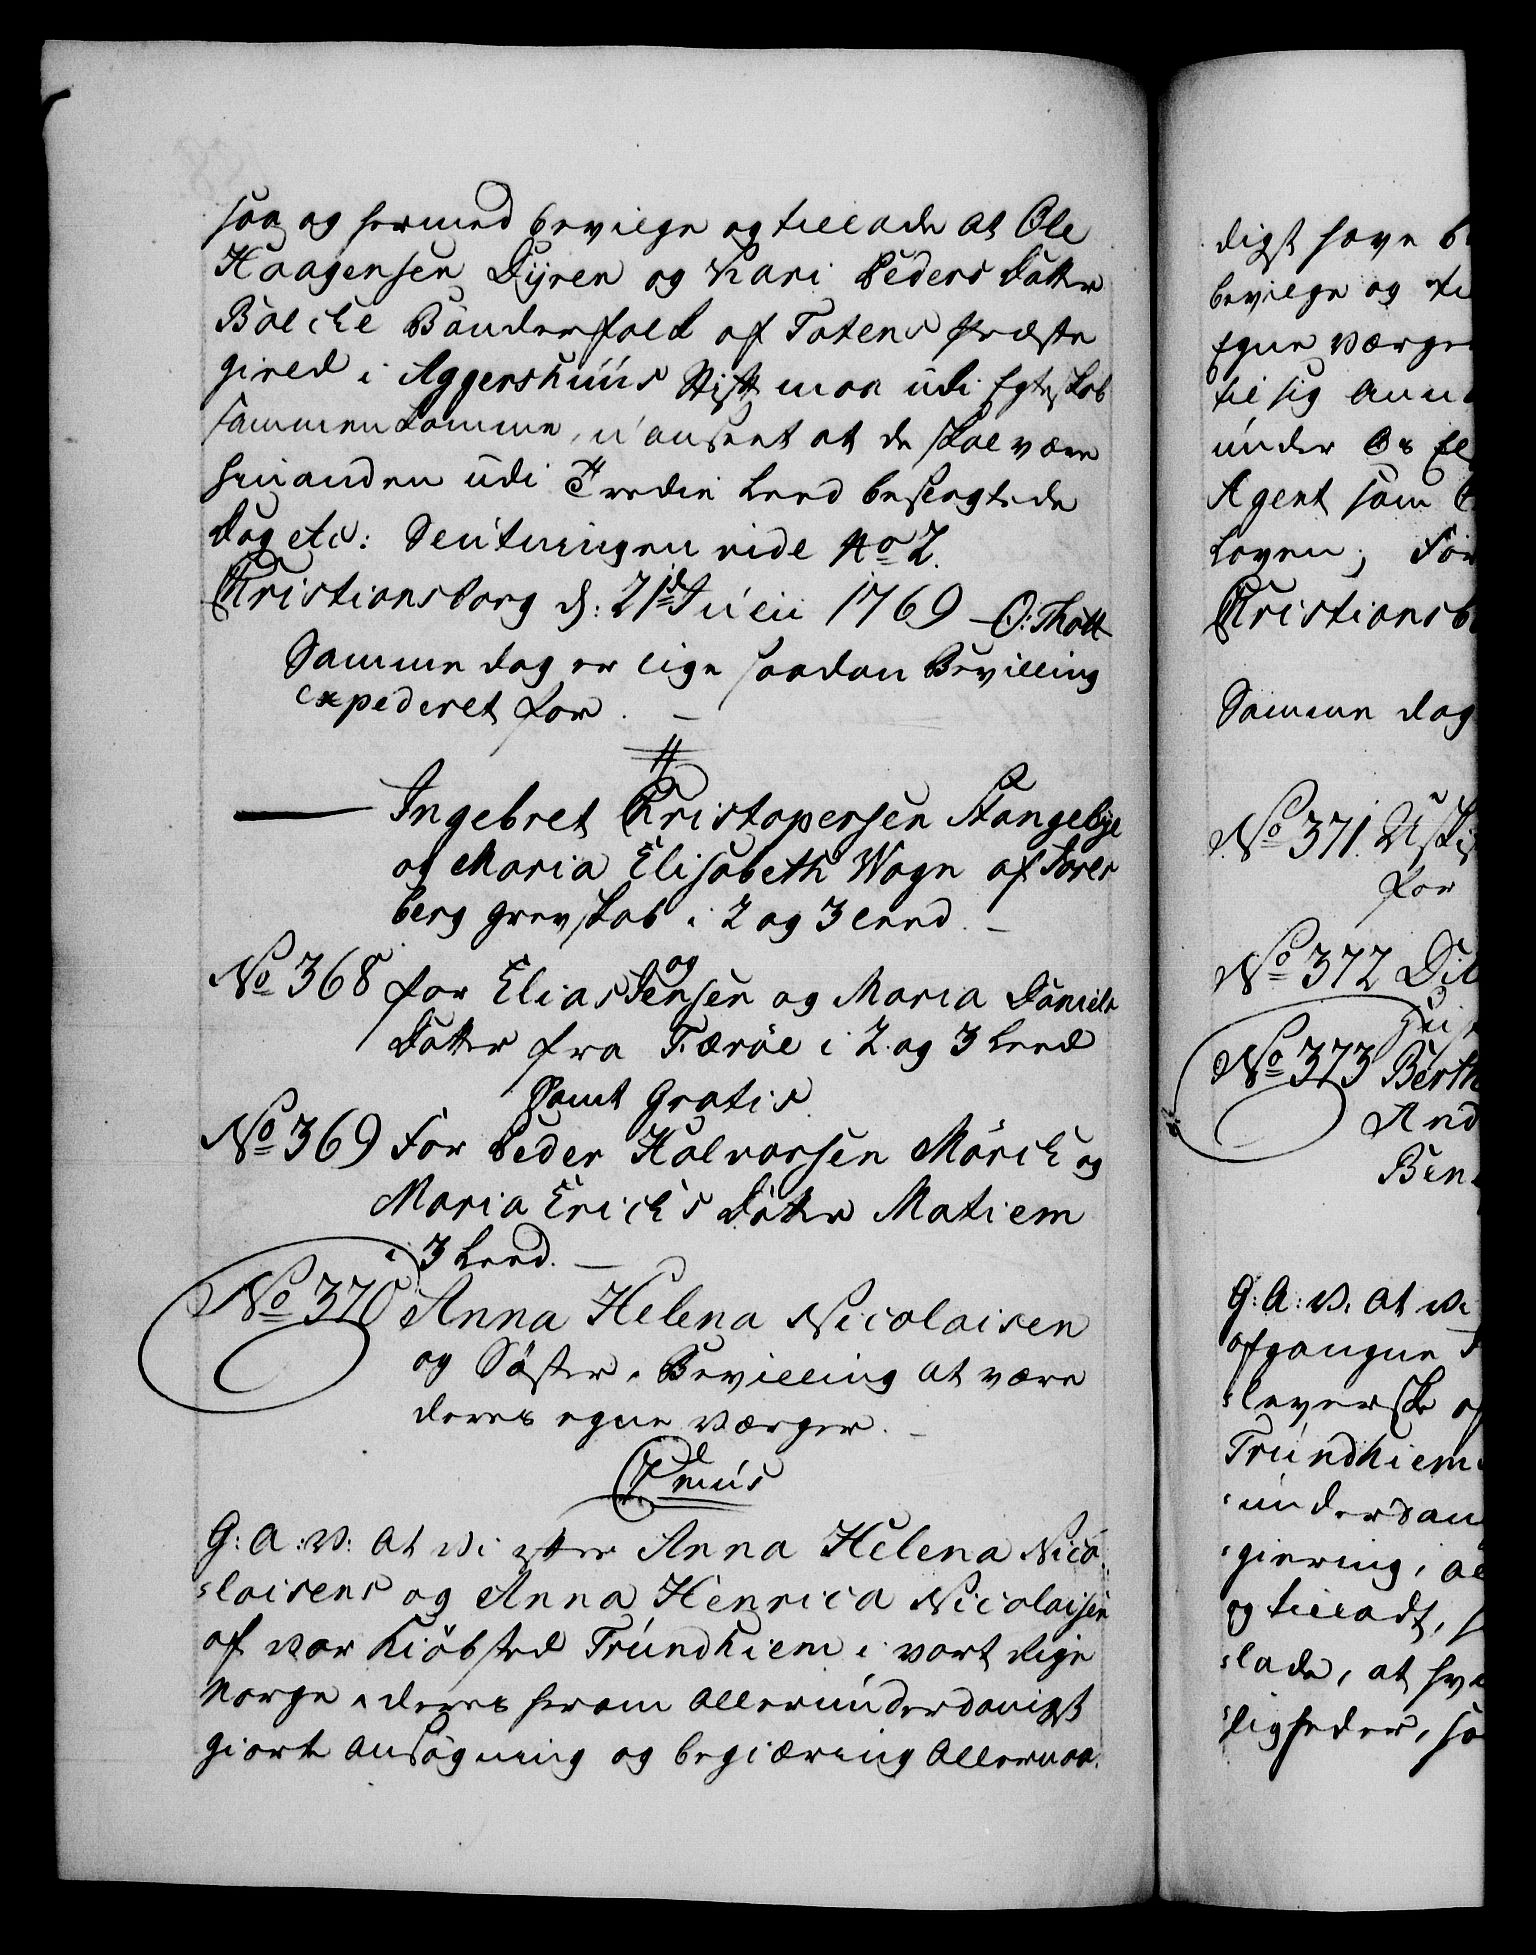 saa og hermed bevilge og tillade at Ole
Haagensen Dÿren og Kari Peders Datter
Bölcke Bönderfolck af Totens Præste
gield i Aggershuus Stift maa udi Egteskab
sammenkomme, uanseet at de skal være
hinanden udi Tredie Leed beslegtede
Dog etc: Slutningen vide No 2.
Christiansborg d: 21de Julii 1769 – O: Thott
Samme dag er lige saadan Bevilling
expederet for. –
Ingebret Christopersen Stangebÿe
og Maria Elisabeth Wogn af Jarls
berg Grevskab i 2 og 3 Leed. –
No 368 for Elias Jensen og Maria Daniels
Datter fra Færöe i 2 og 3 Leed
samt Gratis
No 369 For Peder Halvorsen Mörch og
Maria Erich's Datter Matiem
i 3 Leed. –
No 370 Anna Helena Nicolaisen
og Söster, Bevilling at være
deres egne Værger. –
G: A: V: At Vi efter Anna Helena Nico-
laisens og Anna Henrica Nicolaisen
af vor Kiöbsted Trundhiem i vort Rige
Norge, deres herom allerunderdanigst
giorte Ansögning og begiæring Allernaa-
digst have
bevilge og
Egne Værge
til sig
under Os
Agent som
Loven; For
Christiansb
Samme dag
No 371
for
No 372
No 373 Berth
And
Ben
G: A: V. At Vi
afgangne
leverske
Trundhiem
underdan
giering, al
og tilladt,
lade, at
ligheder,